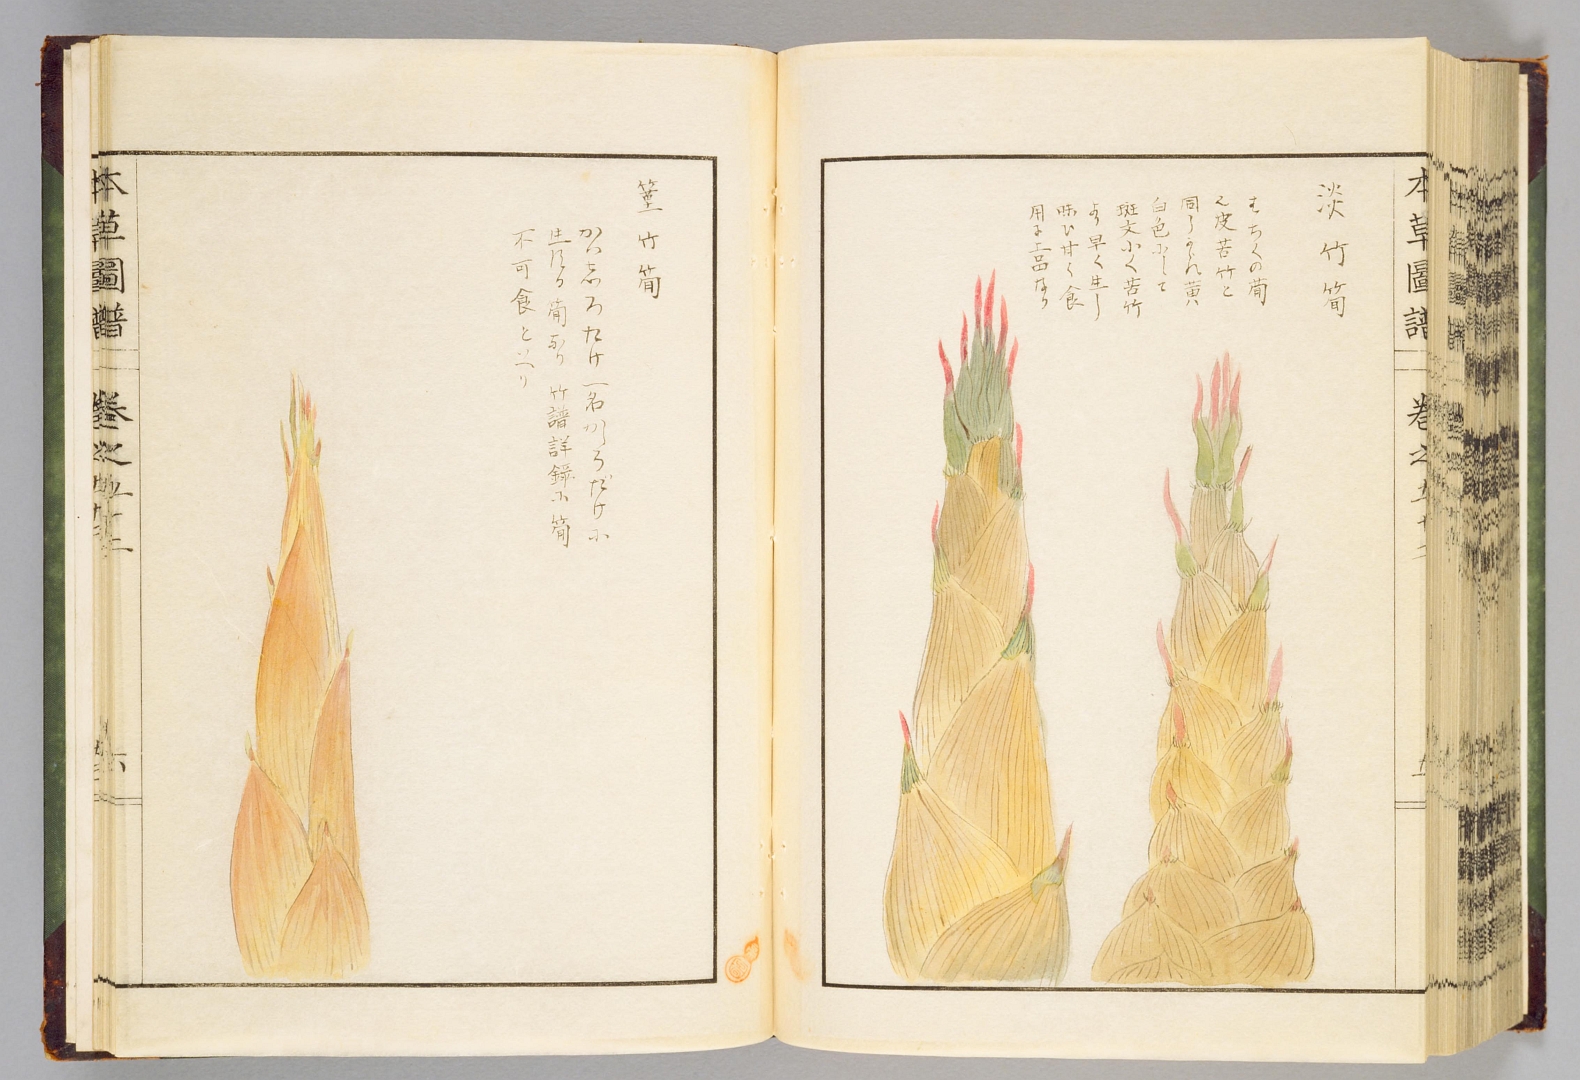 本草圖譜 卷之五十六
淡竹筍
はちくの筍
之皮苦竹と
同うされ黄
白色にして
斑文小く苦竹
より早く生し
味ひ甘く食
用に上品なり
篁竹筍
かハしろたけ一名かしろだけに
生ずる筍なり竹譜詳録に筍
不可食といへり
本草圖譜